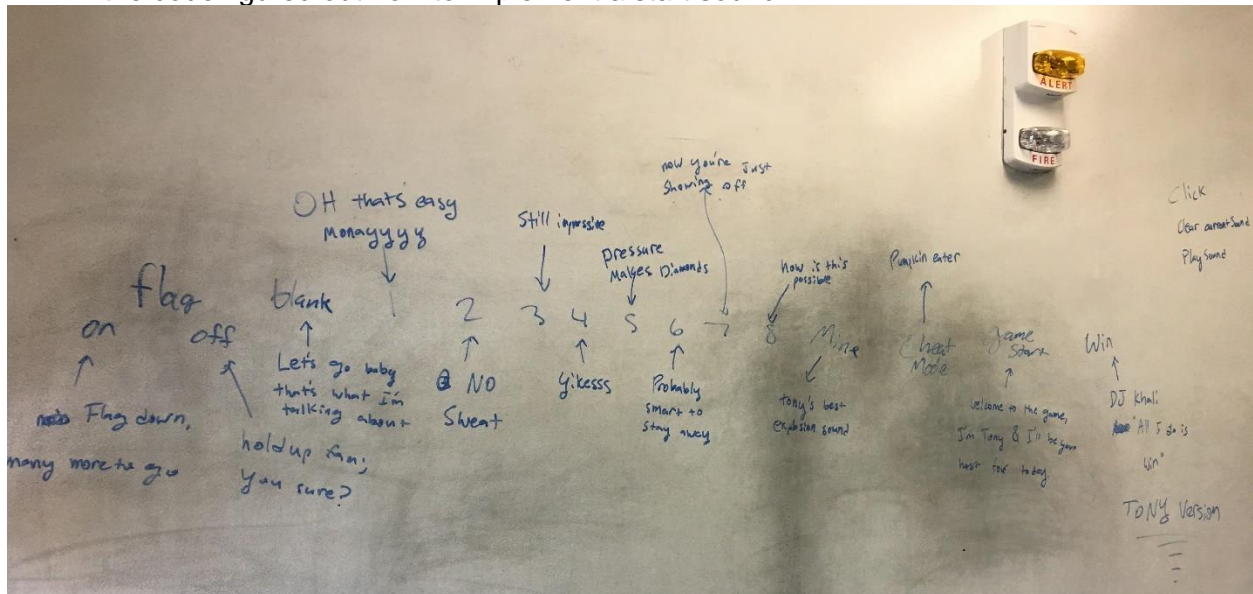 ALERT
FIRE
now you're Just
Showing off
OH that's easy
Monayyyy
Still impressive
pressure
Makes Diamonds
how is this
possible
Pumpkin eater
Click
Clear current Sound
Play Sound
flag
on
off
blank
1
2
3
4
5
6
7
8
Mine
Cheat
Mode
Game
Start
Win
Flag down,
many more to go
hold up
you sure?
Let's go baby
that's what I'm
talking about
NO
Sweat
Yikesss
Probably
smart to
stay away
tony's best
explosion sound
welcome to the game,
I'm Tony & I'll be your
host for today
DJ Khali
"All I do is
win"
TONY Version